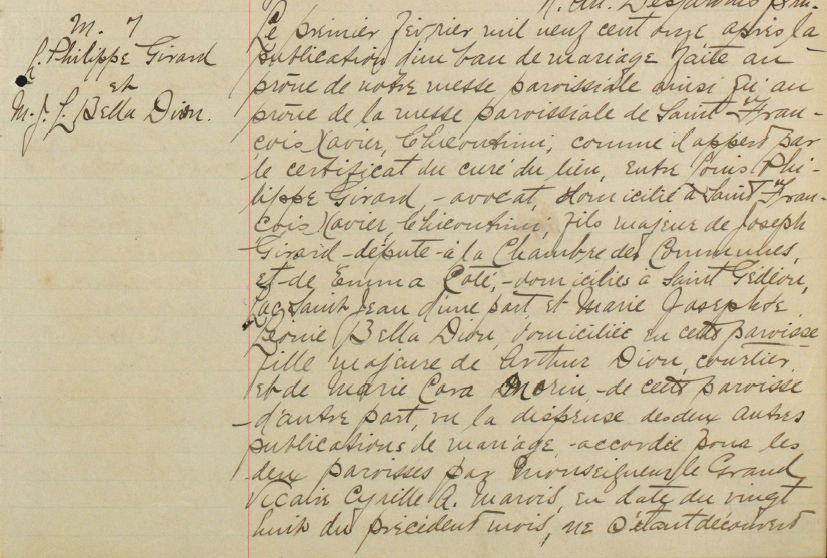 M. 7
L. Philippe Girard
et
M. J. L. Bella Dion.
Le premier février mil neuf cent onze après la
publication d'un ban de mariage faite au
prône de notre messe paroissiale ainsi qu'au
prône de la messe paroissiale de Saint-Fran-
çois Xavier, Chicoutimi, comme il appert par
le certificat du curé du lieu, entre Louis Phi-
lippe Girard, - avocat, domicilié à Saint-Fran-
çois Xavier, Chicoutimi, fils majeur de Joseph
Girard - député - à la Chambre des Communes,
et - de Emma Coté, - domiciliés à Saint Gédéon,
Lac Saint Jean d'une part, et Marie Josephte
Léonie Bella Dion, domiciliée en cette paroisse
fille majeure de Arthur Dion, courtier,
et de Marie Cora Morin, - de cette paroisse
- d'autre part, vu la dispense des deux autres
publications de mariage - accordée pour les
deux paroisses par Monseigneur le Grand
Vicaire Cyrille A. Marois, en date du vingt
huit du précédent mois, ne s'étant découvert